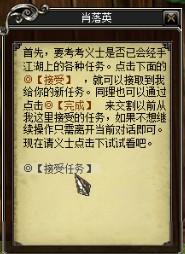 肖落英
首先，要考考义士是否已会经手
江湖上的各种任务。点击下面的
◎【接受】，就可以接取到我
给你的新任务。同理也可以通过
点击◎【完成】来交割以前从
我这里接受的任务，如果不想继
续操作只需离开当前对话即可。
现在请义士点击下试试看吧。
◎【接受任务】